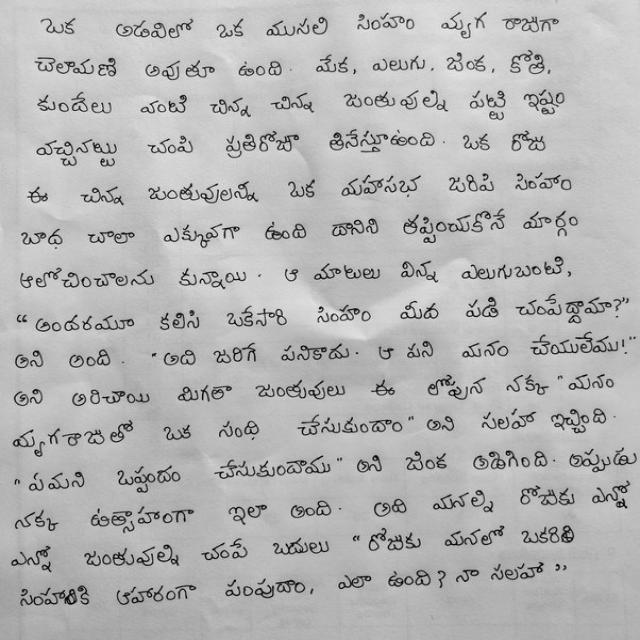 ఒక అడవిలో ఒక ముసలి సింహం మృగ రాజుగా
చెలామణి అవుతూ ఉంది. మేక, ఎలుగు, జింక, కోతి,
కుందేలు వంటి చిన్న చిన్న జంతువుల్ని పట్టి ఇష్టం
వచ్చినట్టు చంపి ప్రతిరోజూ తినేస్తూఉంది. ఒక రోజు
ఈ చిన్న జంతువులన్నీ ఒక మహాసభ జరిపి సింహం
బాధ చాలా ఎక్కువగా ఉంది దానిని తప్పించుకొనే మార్గం
ఆలోచించాలను కున్నాయి. ఆ మాటలు విన్న ఎలుగుబంటి,
"అందరమూ కలిసి ఒకేసారి సింహం మీద పడి చంపేద్దామా?"
అని అంది. "అది జరిగే పనికాదు. ఆ పని మనం చేయలేము!"
అని అరిచాయి మిగతా జంతువులు ఈ లోపున నక్క "మనం
మృగరాజుతో ఒక సంధి చేసుకుందాం" అని సలహా ఇచ్చింది.
"ఏమని ఒప్పందం చేసుకుందాము" అని జింక అడిగింది. అప్పుడు
నక్క ఉత్సాహంగా ఇలా అంది. అది మనల్ని రోజుకు ఎన్నో
ఎన్నో జంతువుల్ని చంపే బదులు "రోజుకు మనలో ఒకరిని
సింహానికి ఆహారంగా పంపుదాం, ఎలా ఉంది? నా సలహా"